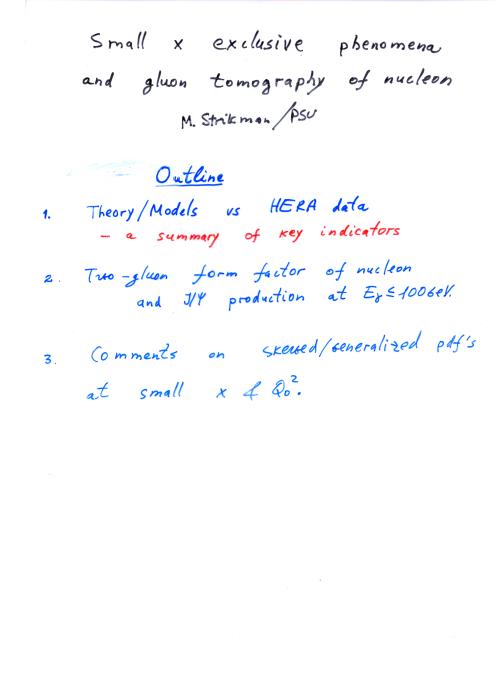 Small x exclusive phenomena
and gluon tomography of nucleon
M. Strikman/PSU
Outline
1. Theory/Models vs HERA data
- a summary of key indicators
2. Two-gluon form factor of nucleon
and J/Ψ production at Eγ ≤ 100 GeV.
3. Comments on skewed/generalized pdf's
at small x & Q₀².